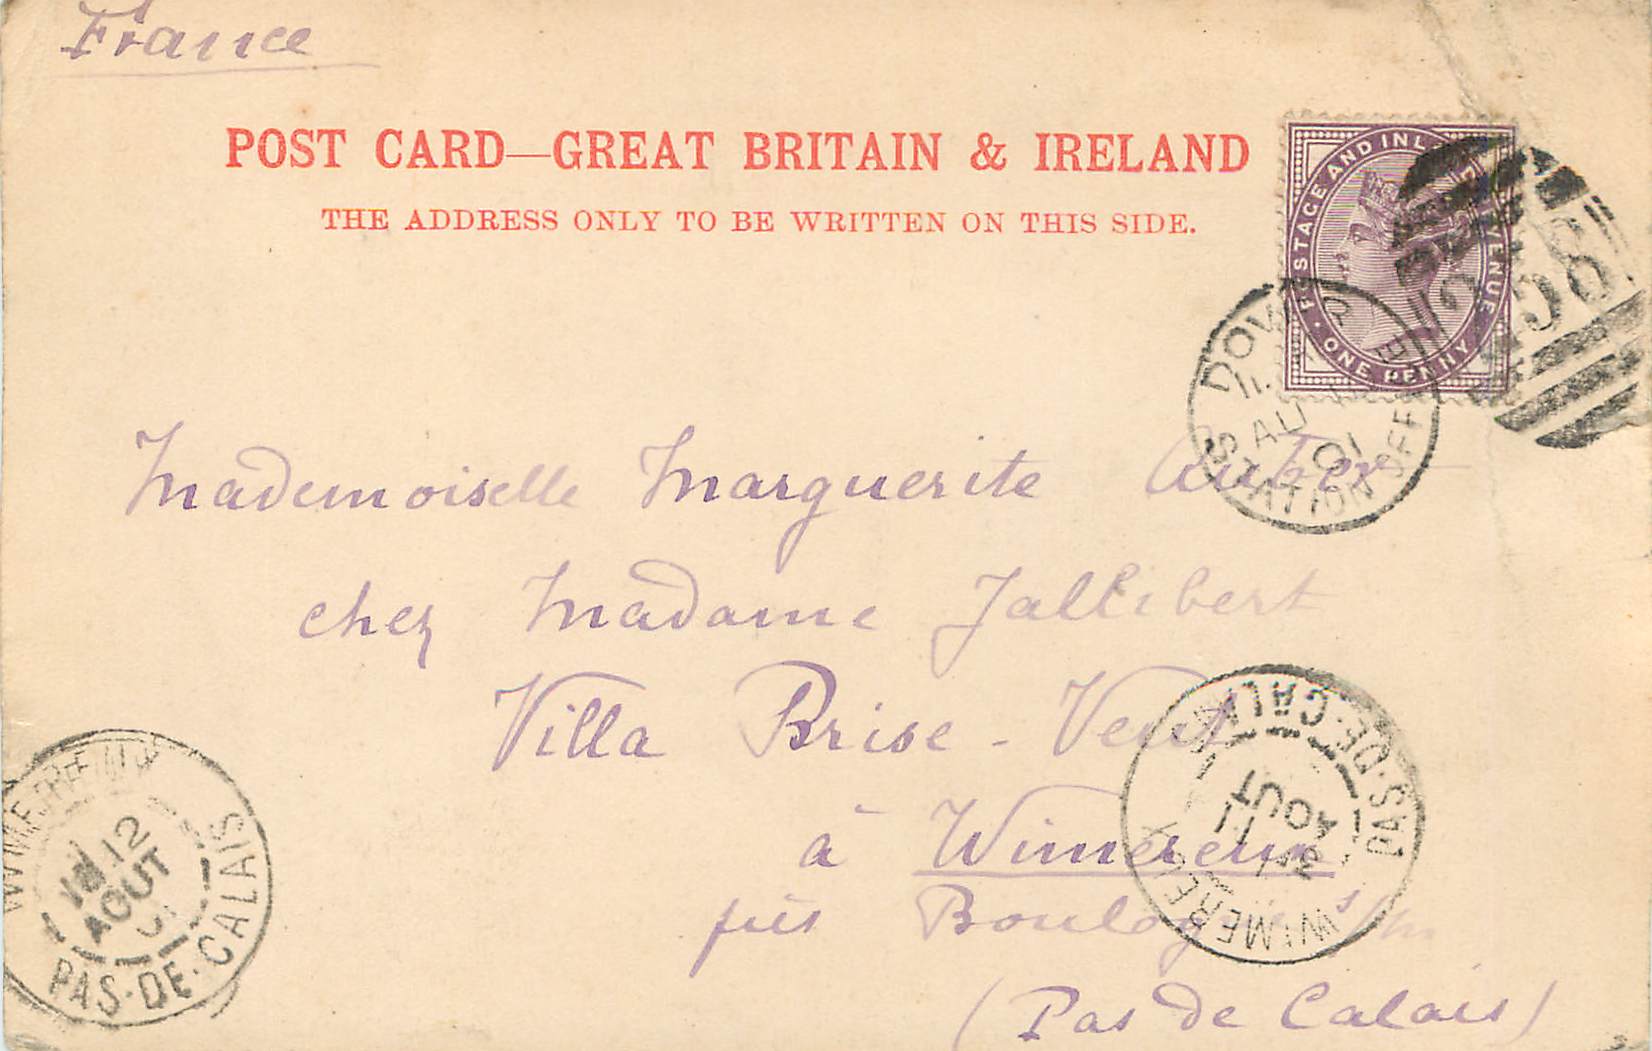 France
POST CARD—GREAT BRITAIN & IRELAND
THE ADDRESS ONLY TO BE WRITTEN ON THIS SIDE.
POSTAGE AND INL REVENUE
ONE PENNY
DOVER
AU
01
STATION OFF
Mademoiselle Marguerite Auber
chez Madame Jallibert
Villa Brise-Vent
à Wimereux
près Boulogne s/m
(Pas de Calais)
WIMEREUX
11
AOUT
PAS-DE-CALAIS
WIMEREUX
12
AOUT
01
PAS-DE-CALAIS